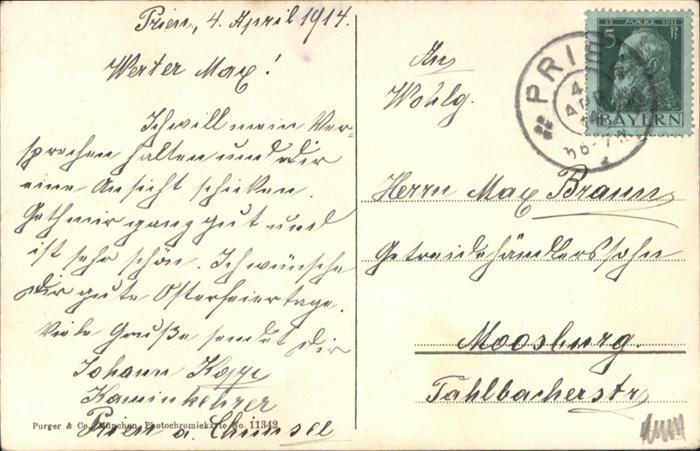 Prien, 4. April 1914.
Werter Max!
Ich will mein Ver-
sprechen halten und dir
eine Ansicht schicken.
Geth mir ganz gut und
ist sehr schön. Ich wünsche
Dir gute Osterfeiertage.
Viele Gruße sendet dir
Johann Kopp
Kaminkehrer
Prien a. Chimsee
Purger & Co., München, Photochromiekarte No. 11342
An
Wohlg.
Herrn Max Braun
Getreidehändlerssohn
Moosburg.
Thalbacherstr
12 MÄRZ 1911
5 Pf
BAYERN
PRIEN
4
APR